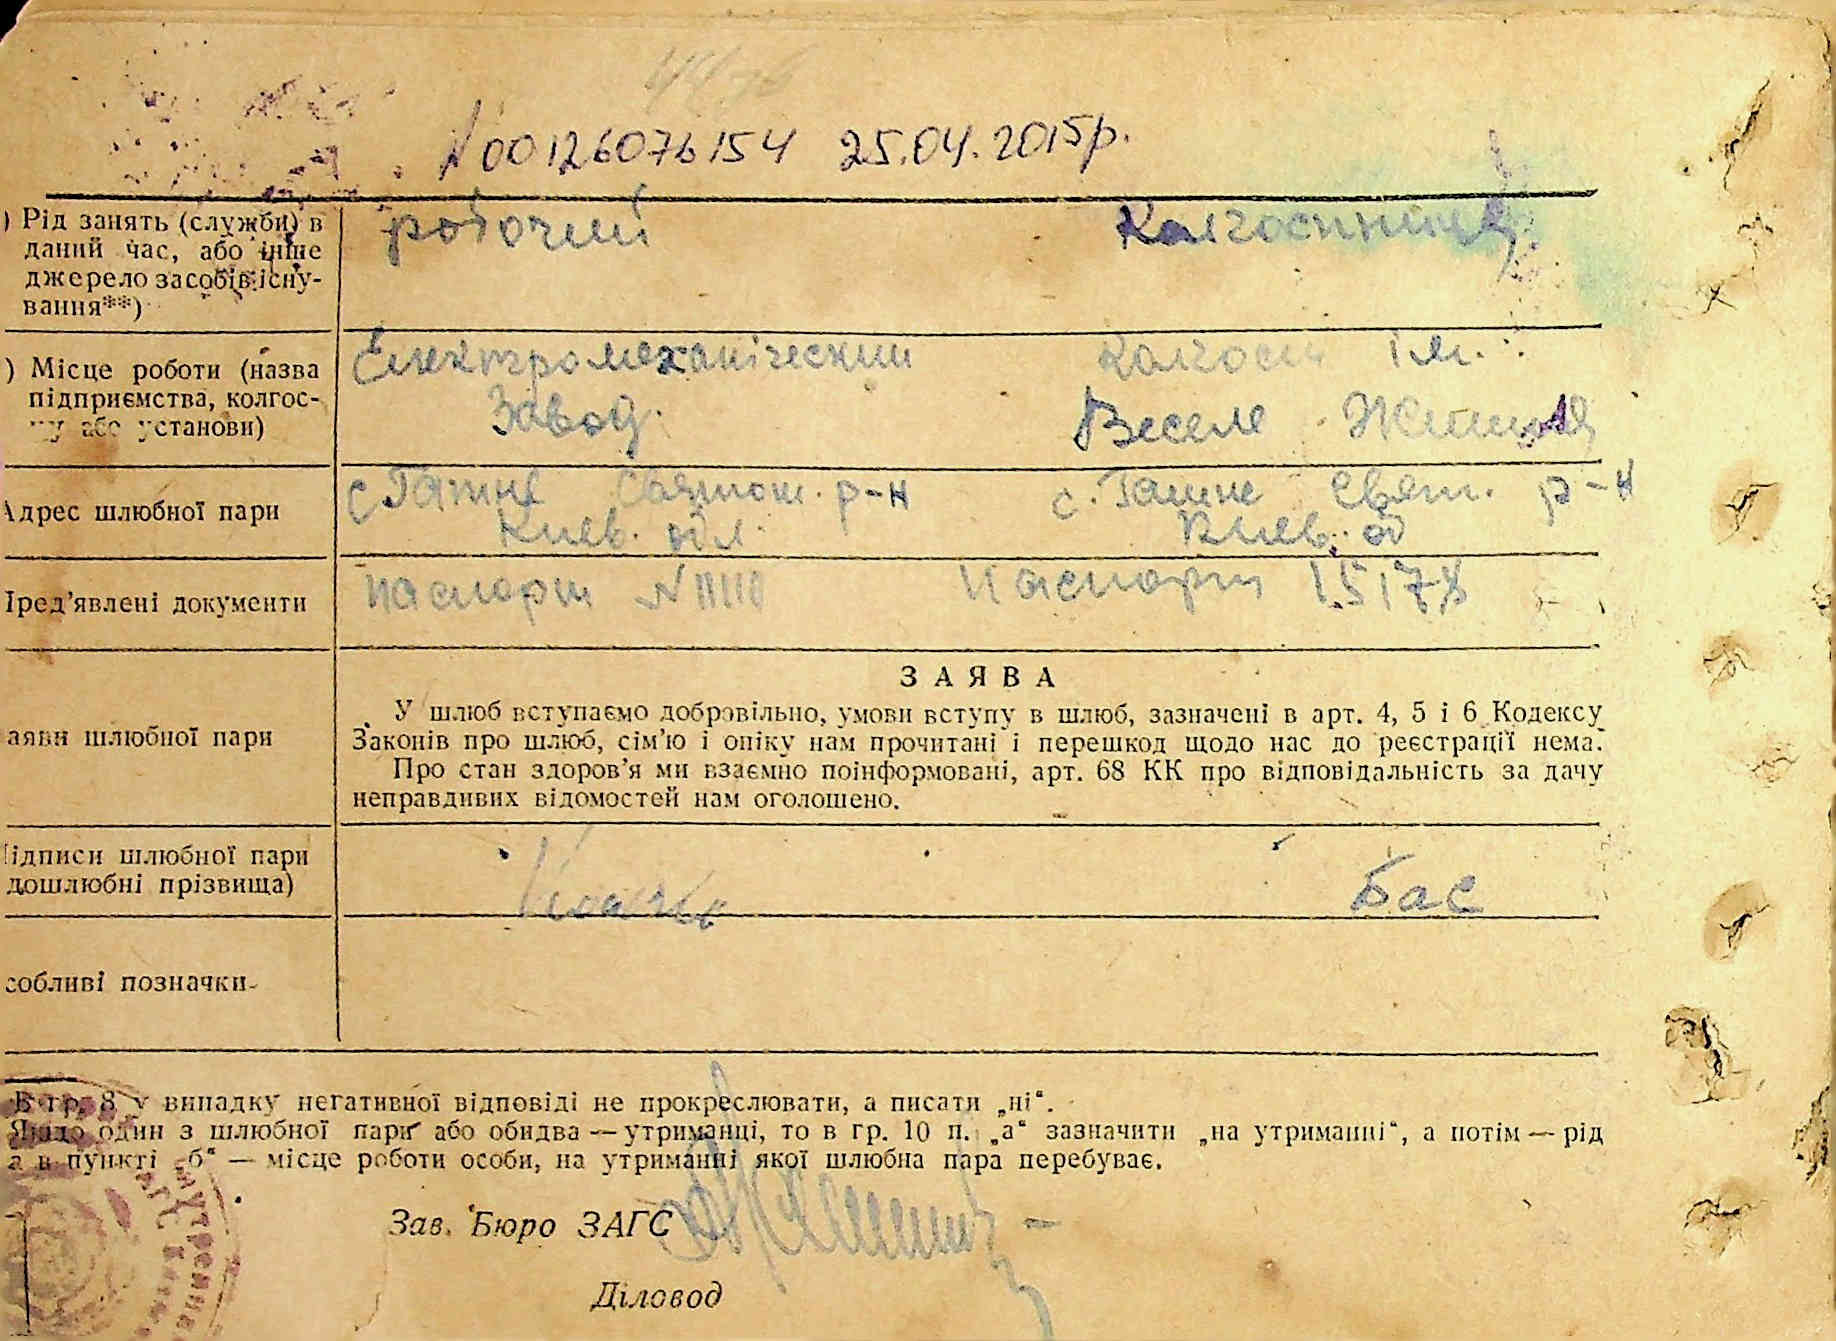 N00126076154 25.04.2015р.
) Рід занять (служби) в
даний час, або інше
джерело засобів існу-
вання**)
робочий
Колгоспниця
) Місце роботи (назва
підприємства, колгос-
пу або установи)
Електромеханіческий
Завод.
Колгосп ім.
Веселе Життя
Адрес шлюбної пари
с. Гатне Святош. р-н
Київ. обл.
с. Гатне Свят. р-н
Київ. об
Пред’явлені документи
паспорт N
Паспорт 15178
ЗАЯВА
аяви шлюбної пари
У шлюб вступаємо добровільно, умови вступу в шлюб, зазначені в арт. 4, 5 і 6 Кодексу
Законів про шлюб, сім’ю і опіку нам прочитані і перешкод щодо нас до реєстрації нема.
Про стан здоров’я ми взаємно поінформовані, арт. 68 КК про відповідальність за дачу
неправдивих відомостей нам оголошено.
Підписи шлюбної пари
дошлюбні прізвища)
Бас
собливі позначки
В гр. 8 у випадку негативної відповіді не прокреслювати, а писати „ні“.
Якщо один з шлюбної пари або обидва — утриманці, то в гр. 10 п. „а“ зазначити „на утриманні“, а потім — рід
а в пункті „б“ — місце роботи особи, на утриманні якої шлюбна пара перебуває.
Зав. Бюро ЗАГС
Діловод